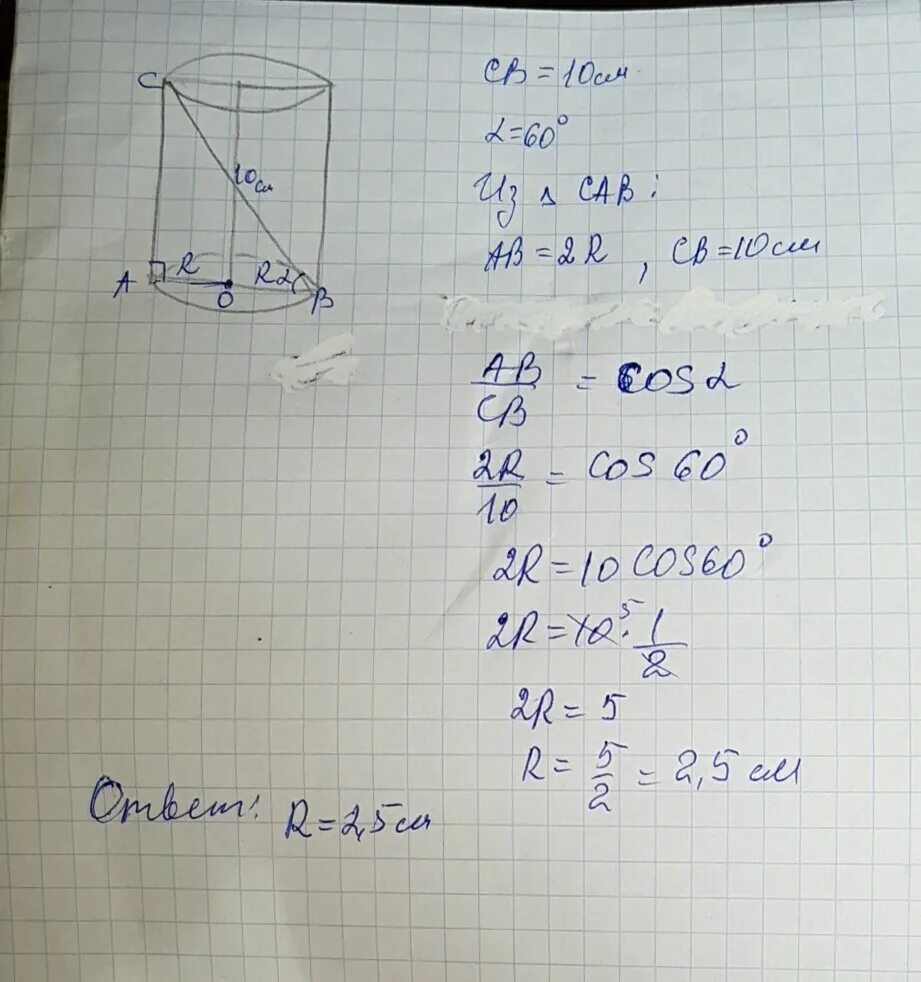 C
10 см
A
R
O
R α
B
CB = 10 см
α = 60°
Из △ CAB :
AB = 2R , CB = 10 см
AB/CB = cos α
2R/10 = cos 60°
2R = 10 cos 60°
2R = 10 5 · 1/2
2R = 5
R = 5/2 = 2,5 см
Ответ: R = 2,5 см